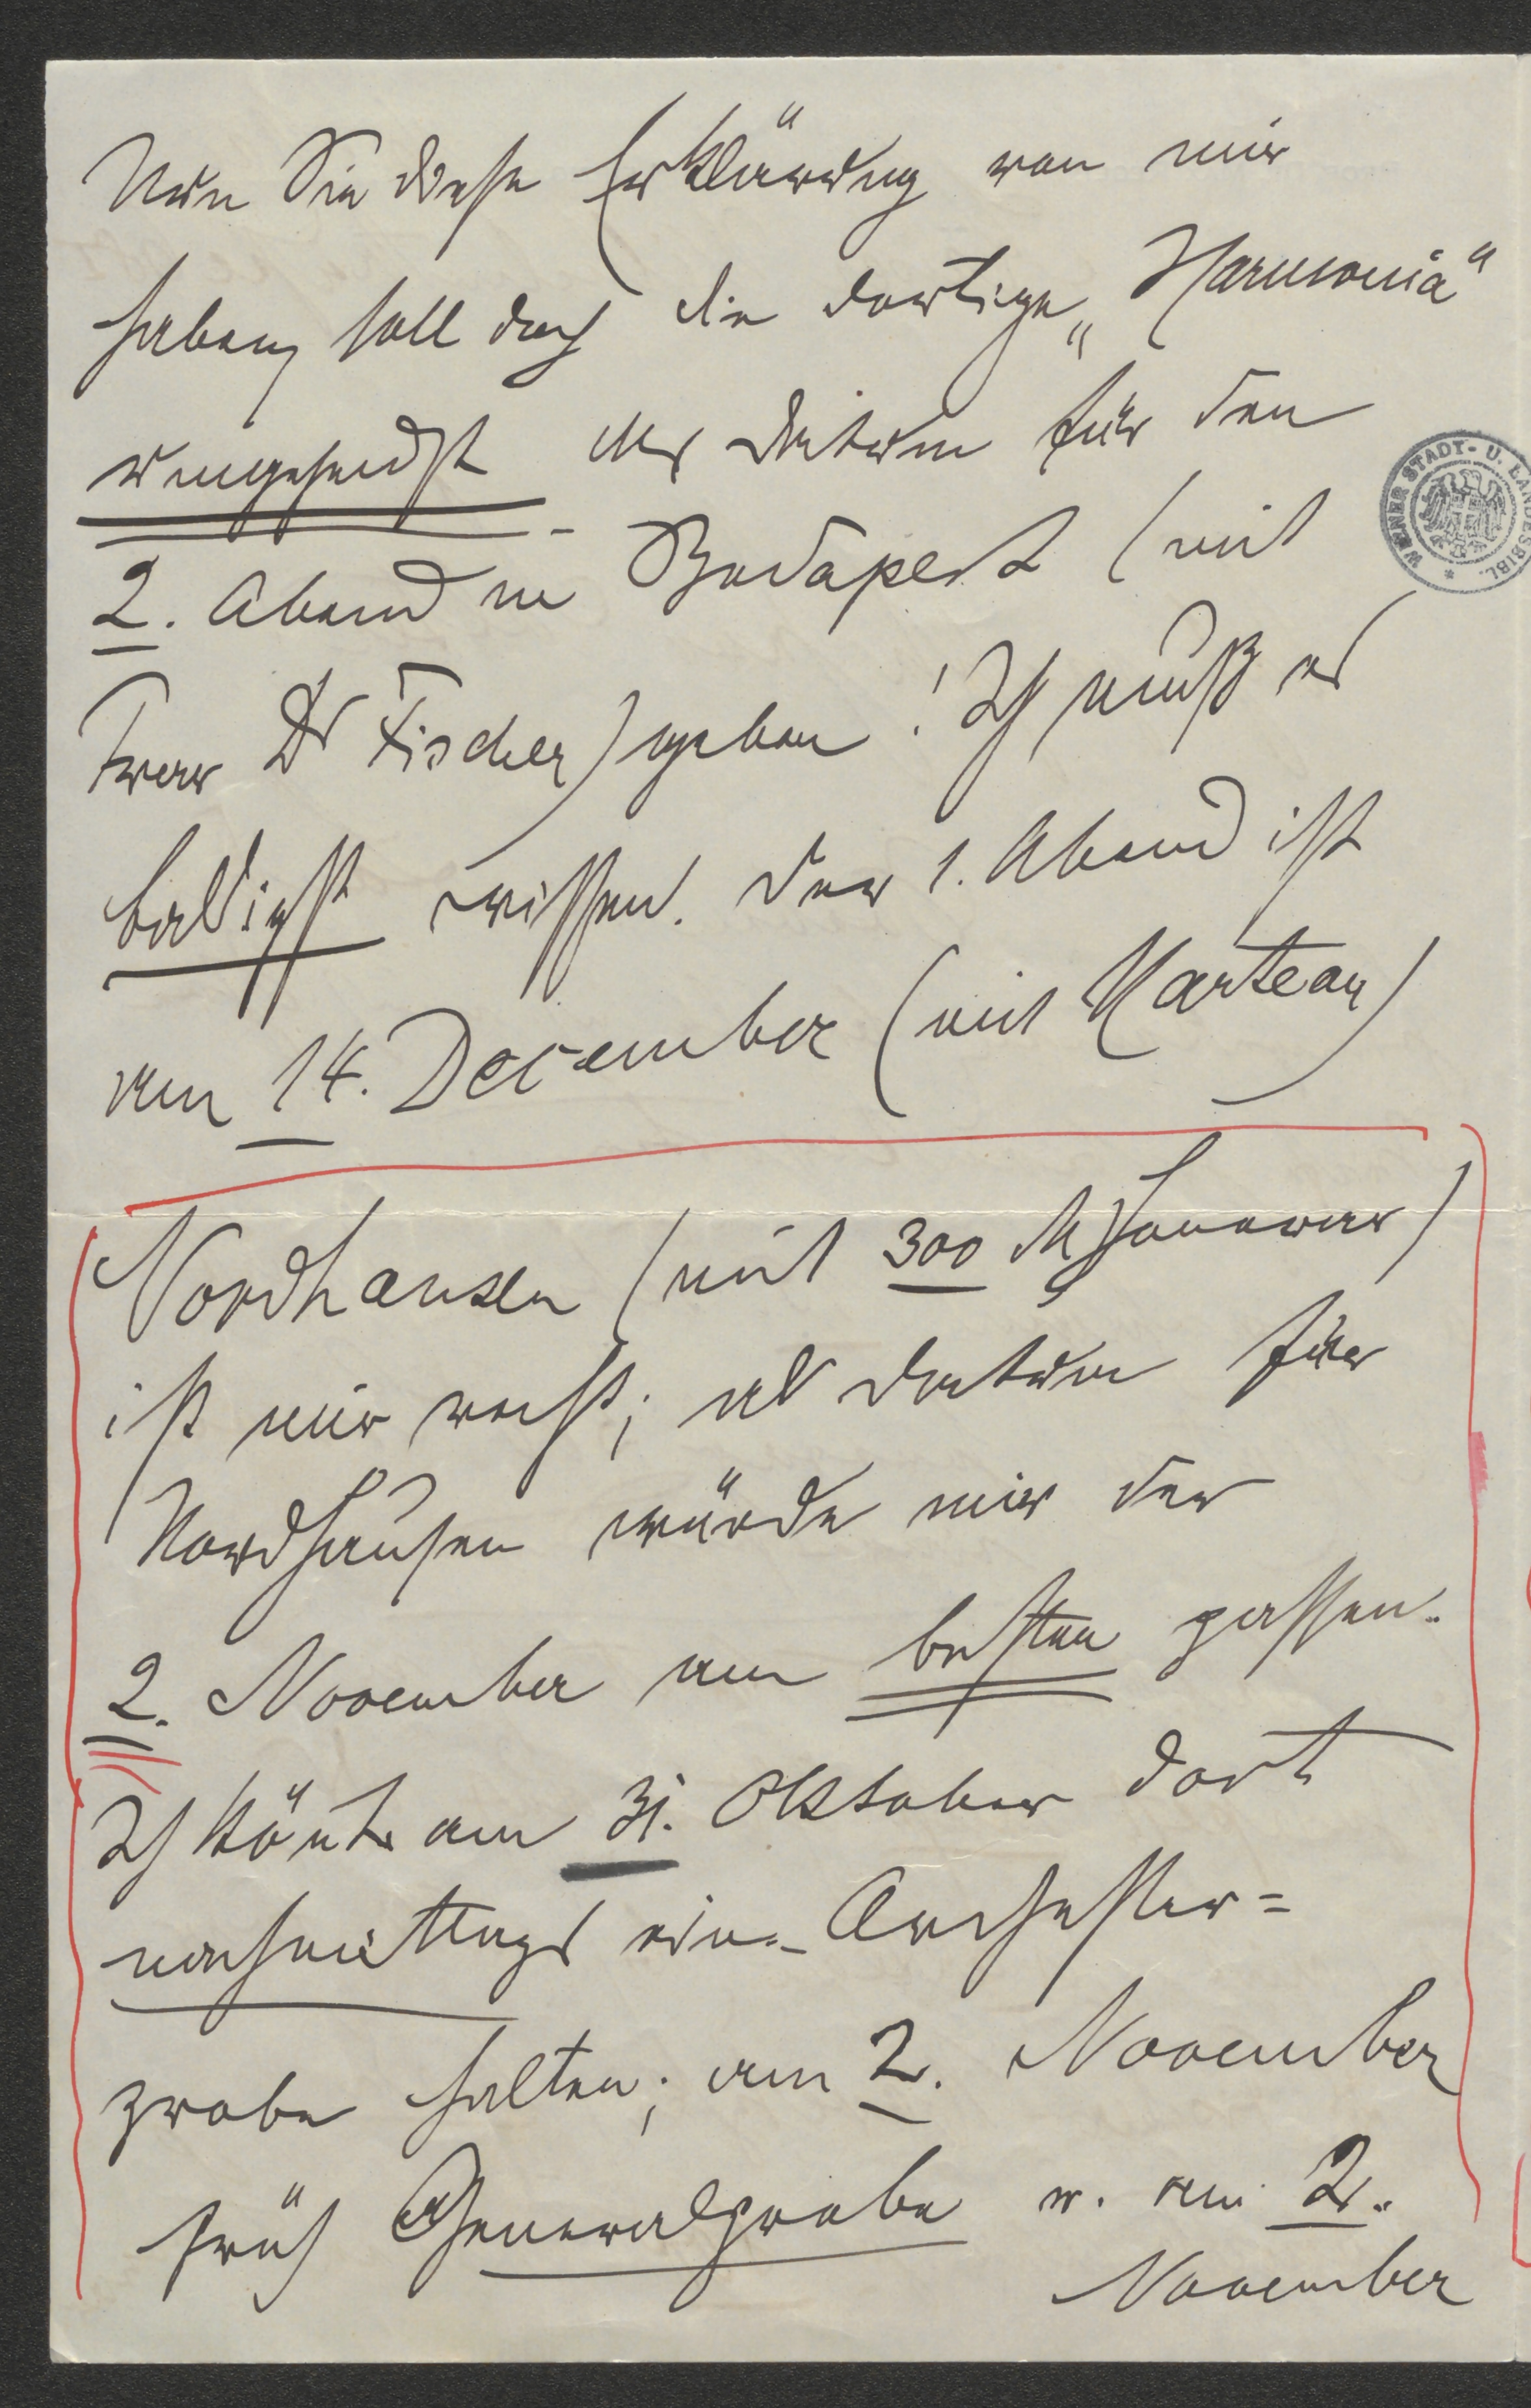 Nun Sie diese Erklärung von mir
haben, soll doch die dortige „Harmonia“
umgehendst das Datum für den
2. Abend in Budapest (mit
Frau Dr Fischer) geben! Ich muß es
baldigst wissen. Der 1. Abend ist
am 14. December (mit Marteau)
Nordhausen (mit 300 M Honorar)
ist mir recht; als Datum für
Nordhausen würde mir der
2. November am besten passen.
Ich könnte am 31. Oktober dort
nachmittags eine Orchester=
probe halten; am 2. November
früh Generalprobe u. am 2.
November
WIENER STADT- U. LANDESBIBL.